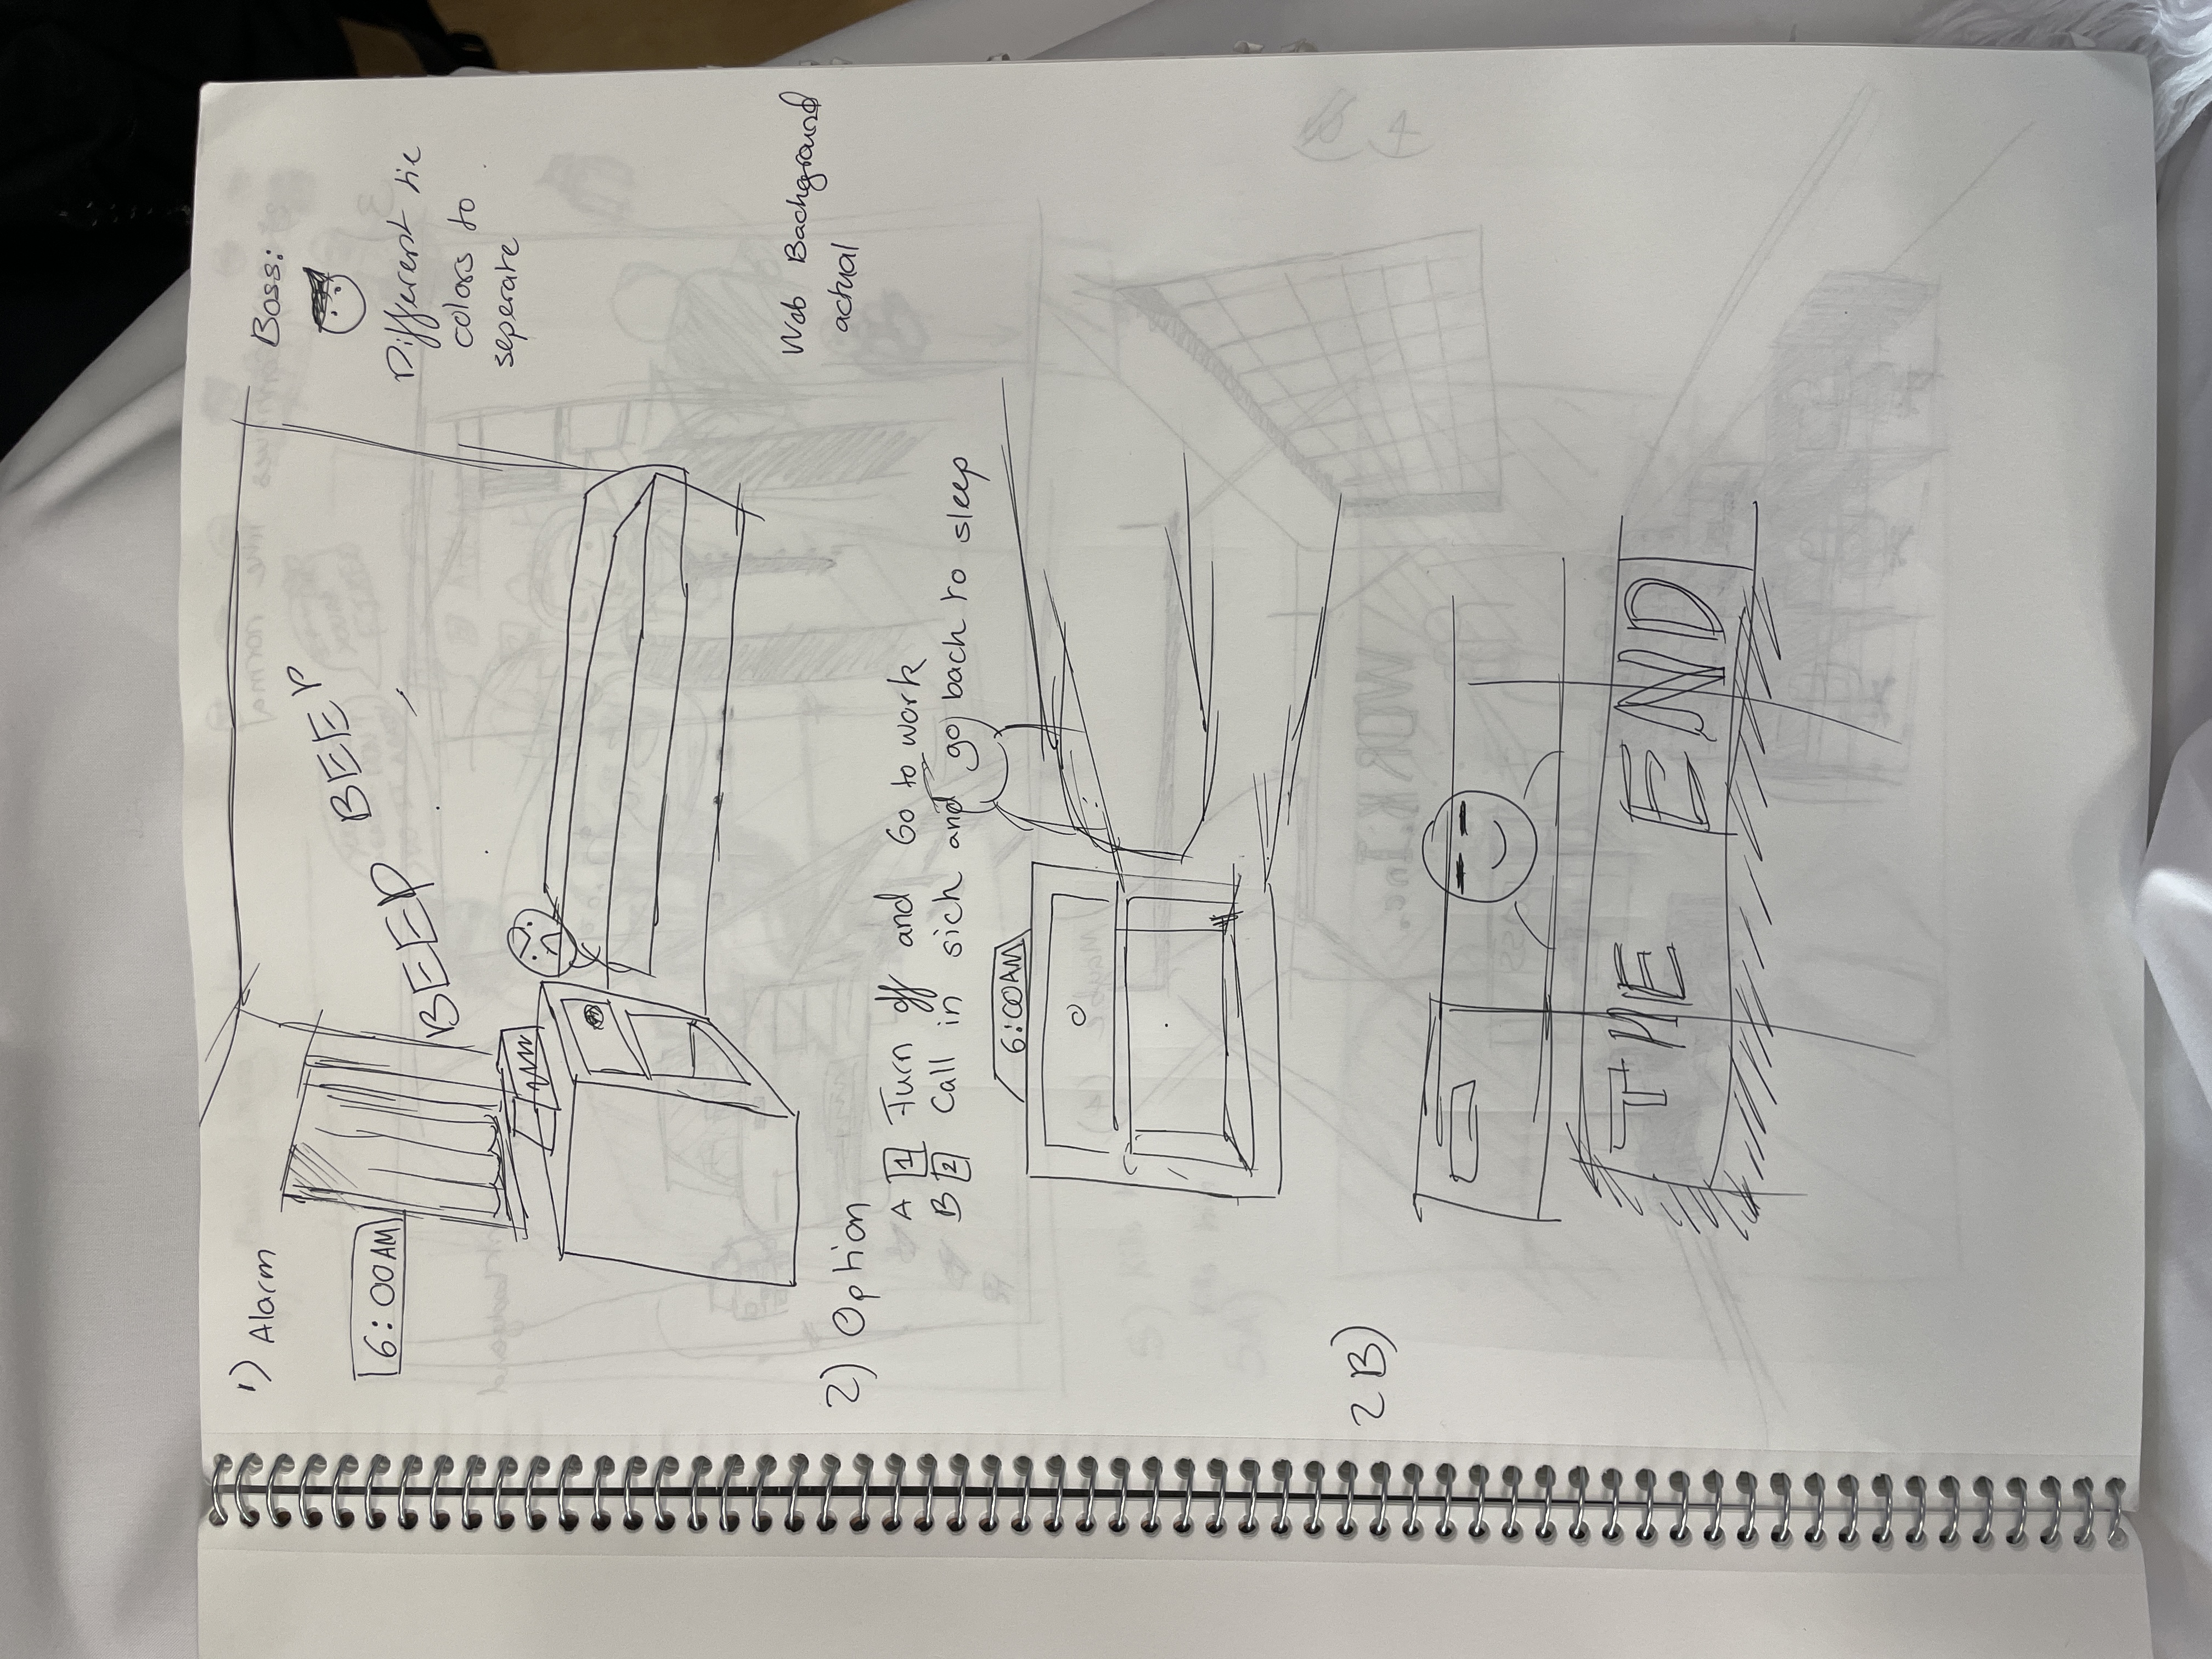 1) Alarm
6:00AM
BEEP BEEP
Boss:
Different tie
colors to
seperate
Web Background
actual
2) Option
A 1 Turn off and Go to work
B 2 Call in sick and go back to sleep
6:00AM
2B)
THE END
WORK.Inc.